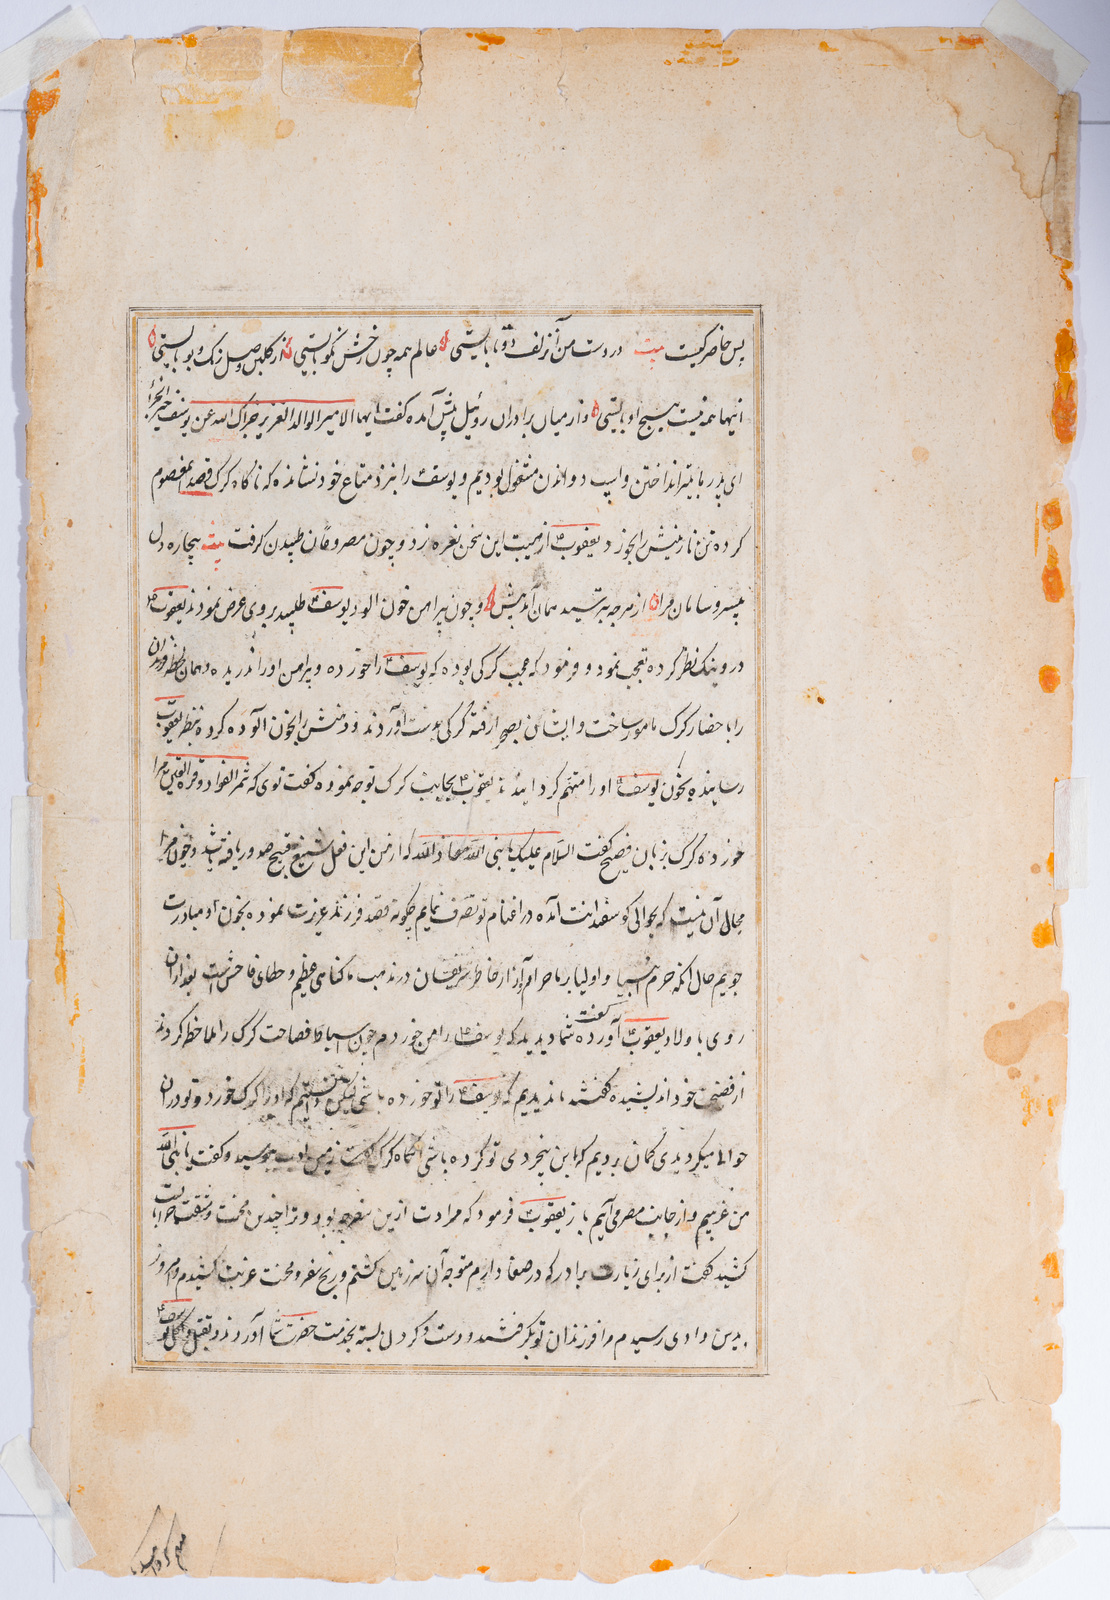 پس حاضر کیست بیت در دست من آن زلف دو تا بایستی عالم همه چون رخش نکو بایستی از کلبن وصل رنک و بو بایستی
اینها همه نیست هیچ او بایستی و از میان برادران روئیل پیش آمده کفت ایها الامیر الوالد العزیز جزاک الله عن یوسف خیر الجزا
ای پدر ما بتیر انداختن و اسپ دواندن مشغول بودیم و یوسف را بنزد متاع خود نشانده که ناکاه کرک قصد آن معصوم
کرده تن نازنینش را بخورد یعقوب از هیبت این سخن نعره زد و چون مصروعان طپیدن کرفت بیت بیچاره دل
بیسر و سامان مرا از هرچه بترسید همان آمد پیش و چون پیراهن خون الود یوسف طلبید بروی عرض نمودند یعقوب
درو نیک نظر کرده تعجب نمود و فرمود که عجب کرکی بوده که یوسف را خورده و پیراهن او را ندریده و همان لحظه فرزندان
را باحضار کرک مامور ساخت و ایشان بصحرا رفته کرکی بدست آوردند و دهنش را بخون آلوده کرده بنظر یعقوب
رسانیده بخون یوسف او را متهم کردانیدند یعقوب بجانب کرک توجه نموده کفت توی که ثمر الفواد و قرة العین مرا
خورده کرک بزبان فصیح کفت السلام علیک یا نبی الله معاذ الله که از من این فعل شنیع قبیح صدور یافته باشد و چون مرا
مجال آن نیست که بحوالی کوسفندانت آمده در اغنام تو تصرف نمایم چکونه قصد فرزند عزیزت نموده بخون او مبادرت
جویم حال آنکه حرم انبیا و اولیا بر ما حرام و آزار خاطر شریفشان در مذهب ما کناهی عظیم و خطای فاحش است بعد از آن
روی باولاد یعقوب آورده کفت شما دیدید که یوسف را من خوردم چون اسباط فصاحت کرک را ملاحظه کردند
از فضیحت خود اندیشیده کفتند ما ندیدیم که یوسف را تو خورده باشی لیکن دانستیم که او را کرک خورد و تو در آن
حوالی میکردیدی کمان بردیم که این بیخردی تو کرده باشی آنکاه کرک کفت زمین ادب بوسید و کفت یا نبی الله
من غریبم و از جانب مصر می آیم باز یعقوب فرمود که مرادت ازین سفر چه بود و ترا چندین محنت و مشقت چرا بایست
کشید کفت از برای زیارت برادر که در صنعا دارم متوجه آن سرزمین کشتم و رنج سفر و محنت غربت کشیدم و امروز
بدین وادی رسیدم مرا فرزندان تو بکرفتند و دست و کردن بسته بخدمت حضرت شما آوردند و بقتل و اکل یوسف